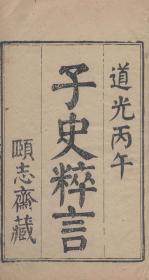 道光丙午
子史粹言
頤志齋藏